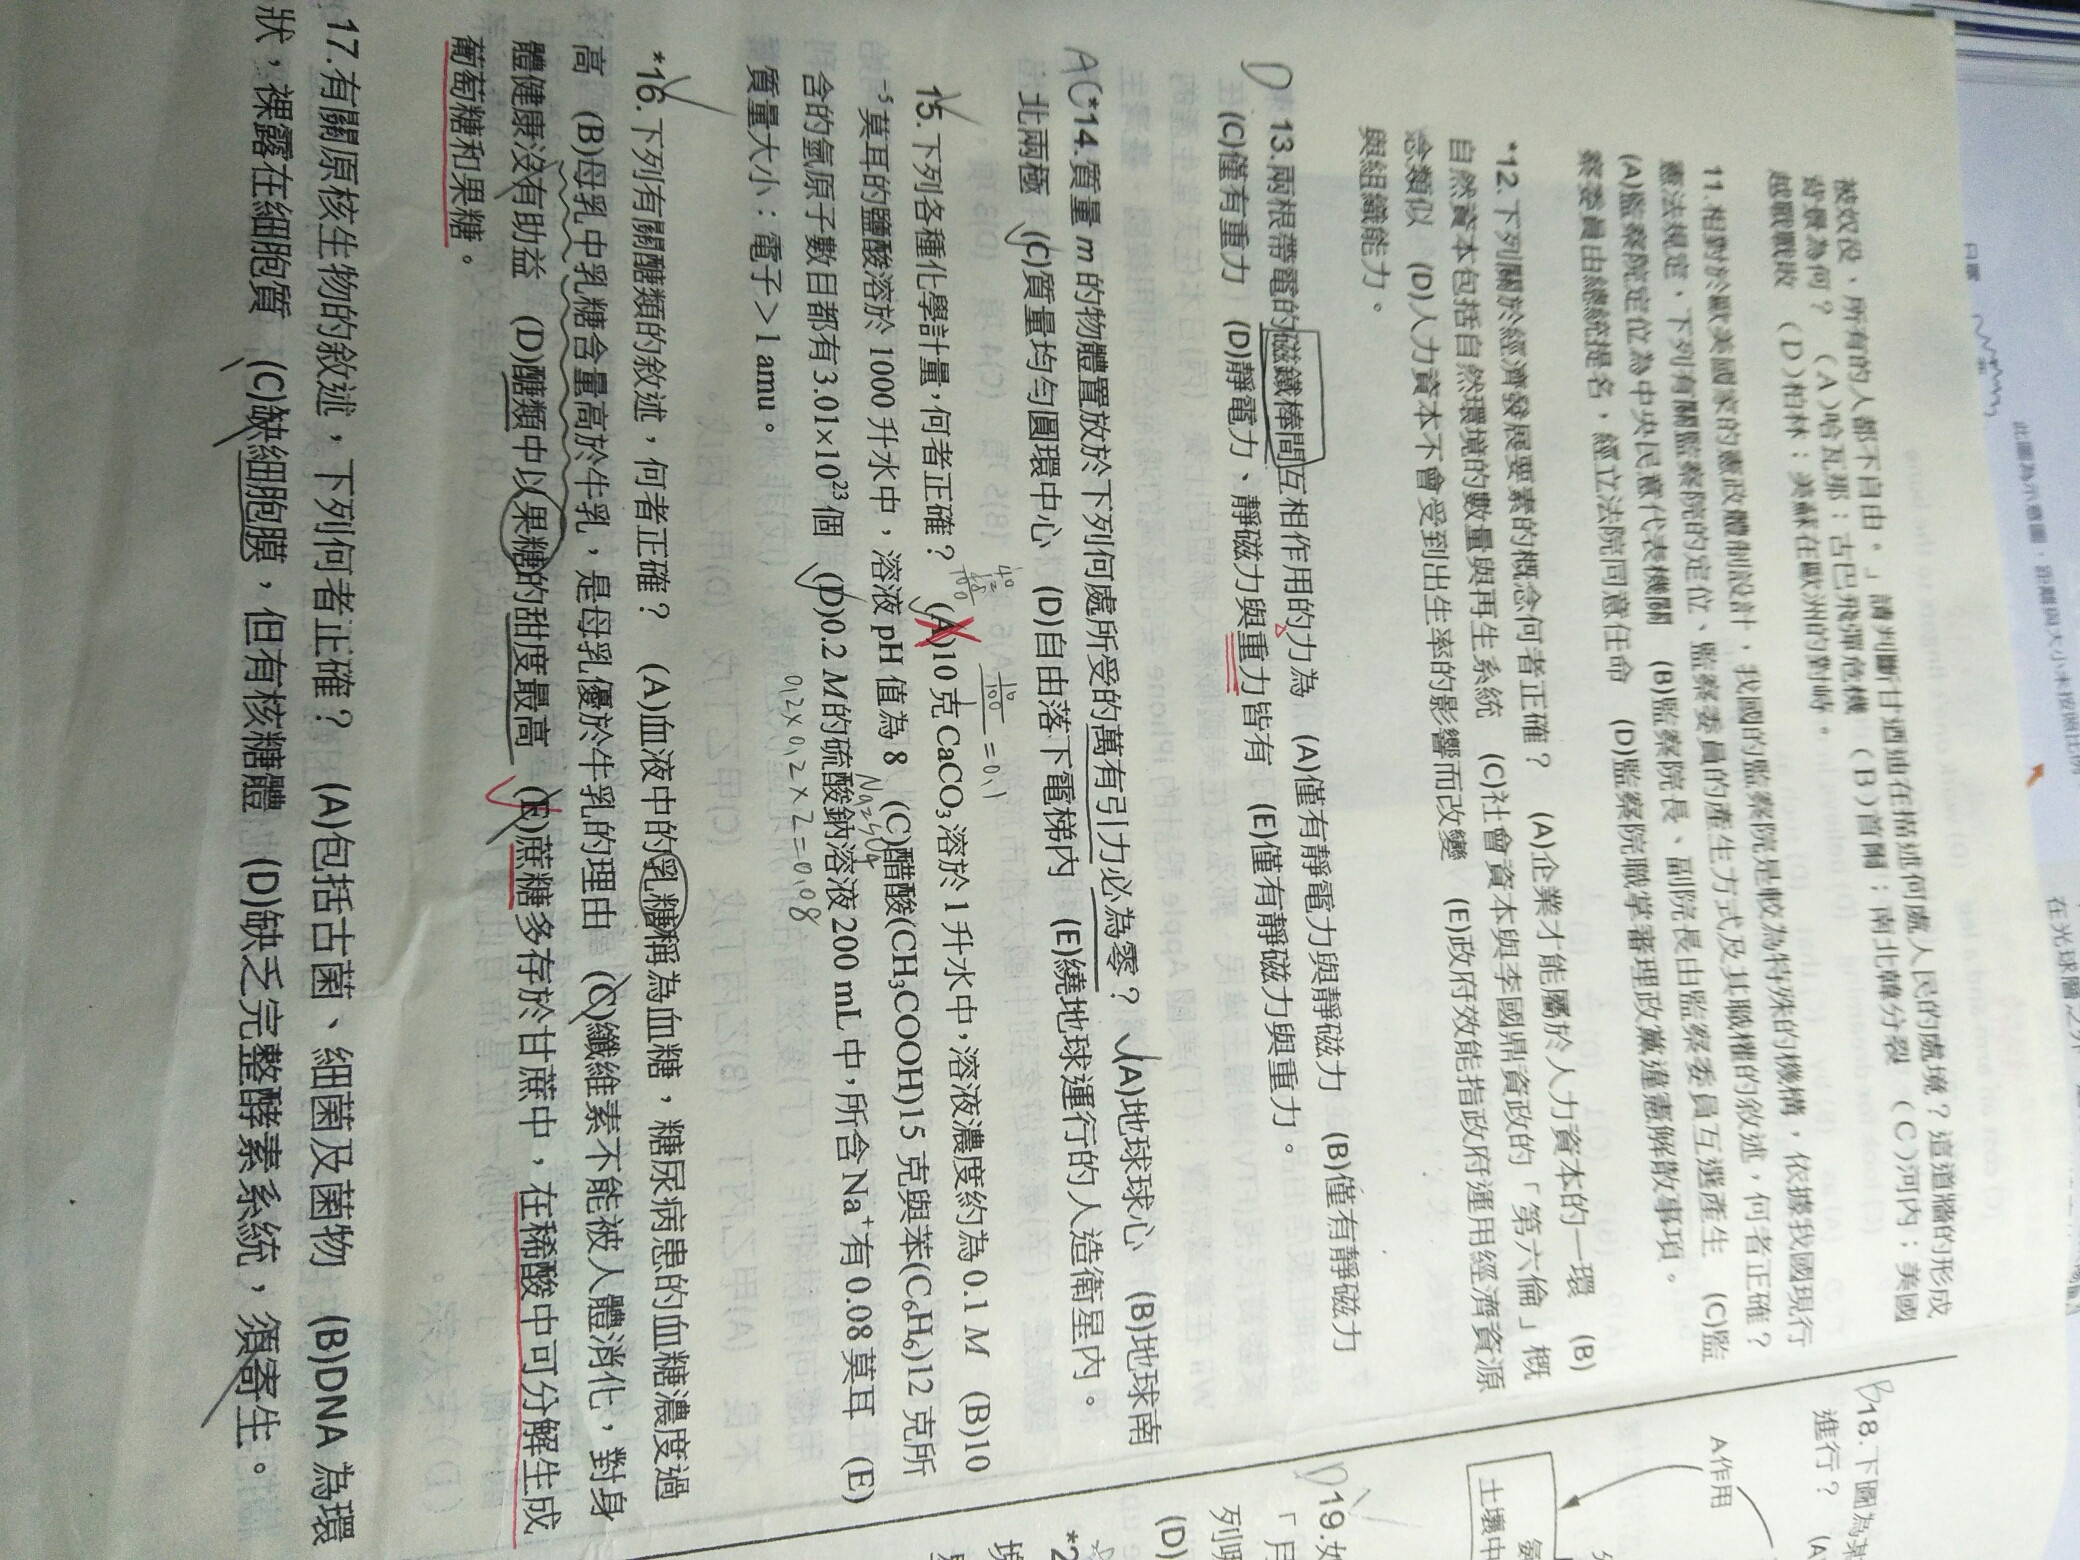 被奴役，所有的人都不自由。」請判斷甘迺迪在描述何處人民的處境？這道牆的形成
背景為何？ (A)哈瓦那；古巴飛彈危機 (B)首爾；南北韓分裂 (C)河內；美國
越戰戰敗 (D)柏林；美蘇在歐洲的對峙。
11.相對於歐美國家的憲政體制設計，我國的監察院是較為特殊的機構，依據我國現行
憲法規定，下列有關監察院的定位、監察委員的產生方式及其職權的敘述，何者正確？
(A)監察院定位為中央民意代表機關 (B)監察院長、副院長由監察委員互選產生 (C)監
察委員由總統提名，經立法院同意任命 (D)監察院職掌審理政黨違憲解散事項。
*12.下列關於經濟發展要素的概念何者正確？ (A)企業才能屬於人力資本的一環 (B)
自然資本包括自然環境的數量與再生系統 (C)社會資本與李國鼎資政的「第六倫」概
念類似 (D)人力資本不會受到出生率的影響而改變 (E)政府效能指政府運用經濟資源
與組織能力。
D *13.兩根帶電的磁鐵棒間互相作用的力為 (A)僅有靜電力與靜磁力 (B)僅有靜磁力
(C)僅有重力 (D)靜電力、靜磁力與重力皆有 (E)僅有靜磁力與重力。
AC *14.質量 m 的物體置放於下列何處所受的萬有引力必為零？ (A)地球球心 (B)地球南
北兩極 (C)質量均勻圓環中心 (D)自由落下電梯內 (E)繞地球運行的人造衛星內。
15.下列各種化學計量，何者正確？ (A)10 克 CaCO₃ 溶於 1 升水中，溶液濃度約為 0.1 M (B)10
⁻⁵ 莫耳的鹽酸溶於 1000 升水中，溶液 pH 值為 8 (C)醋酸(CH₃COOH)15 克與苯(C₆H₆)12 克所
含的氫原子數目都有 3.01×10²³ 個 (D)0.2 M 的硫酸鈉溶液 200 mL 中，所含 Na⁺ 有 0.08 莫耳 (E)
質量大小：電子＞1 amu。
10/100 = 0.1
Na₂SO₄
0.2×0.2×2=0.08
*16.下列有關醣類的敘述，何者正確？ (A)血液中的乳糖稱為血糖，糖尿病患的血糖濃度過
高 (B)母乳中乳糖含量高於牛乳，是母乳優於牛乳的理由 (C)纖維素不能被人體消化，對身
體健康沒有助益 (D)醣類中以果糖的甜度最高 (E)蔗糖多存於甘蔗中，在稀酸中可分解生成
葡萄糖和果糖。
17.有關原核生物的敘述，下列何者正確？ (A)包括古菌、細菌及菌物 (B)DNA 為環
狀，裸露在細胞質 (C)缺細胞膜，但有核糖體 (D)缺乏完整酵素系統，須寄生。
B 18.下圖為某
進行？ (A)
A作用
土壤中
D 19.如
「月
列哪
(D)
此圖為示意圖，距離與大小未按照比例
在光球層之外